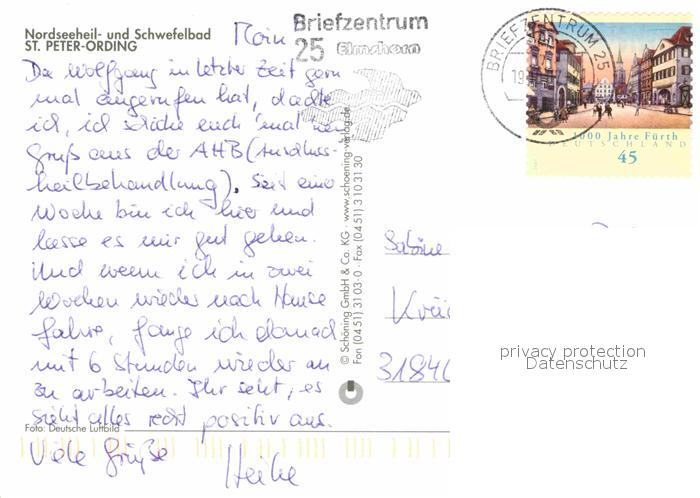 Nordseeheil- und Schwefelbad
ST. PETER-ORDING
Moin!
Da Wolfgang in letzter Zeit gern
mal angerufen hat, dachte
ich, ich schicke euch 'mal nen
Gruß aus der AHB (Anschluss-
heilbehandlung). Seit einer
Woche bin ich hier und
lasse es mir gut gehen.
Und wenn ich in zwei
Wochen wieder nach Hause
fahre, fange ich danach
mit 6 Stunden wieder an
zu arbeiten. Ihr seht, es
sieht alles recht positiv aus.
Foto: Deutsche Luftbild
Viele Grüße Heike
© Schöning GmbH & Co. KG · www.schoening-verlag.de
Fon (04 51) 31 03-0 · Fax (04 51) 3 10 31 30
Briefzentrum
25 Elmshorn
BRIEFZENTRUM 25
1000 Jahre Fürth
DEUTSCHLAND
45
Sabine
31840
privacy protection
Datenschutz